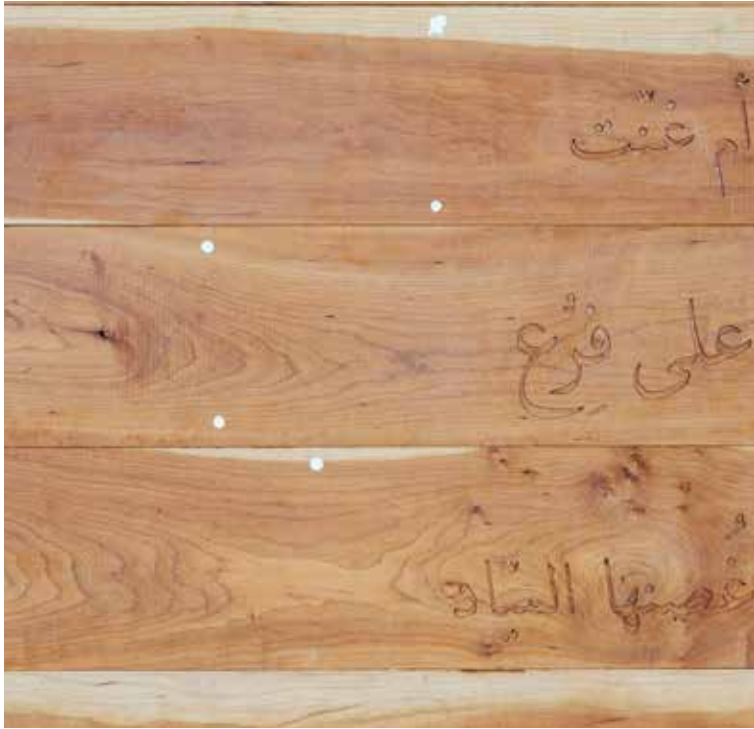 أم غنّت
على فرْع
غُصنها الميّاد